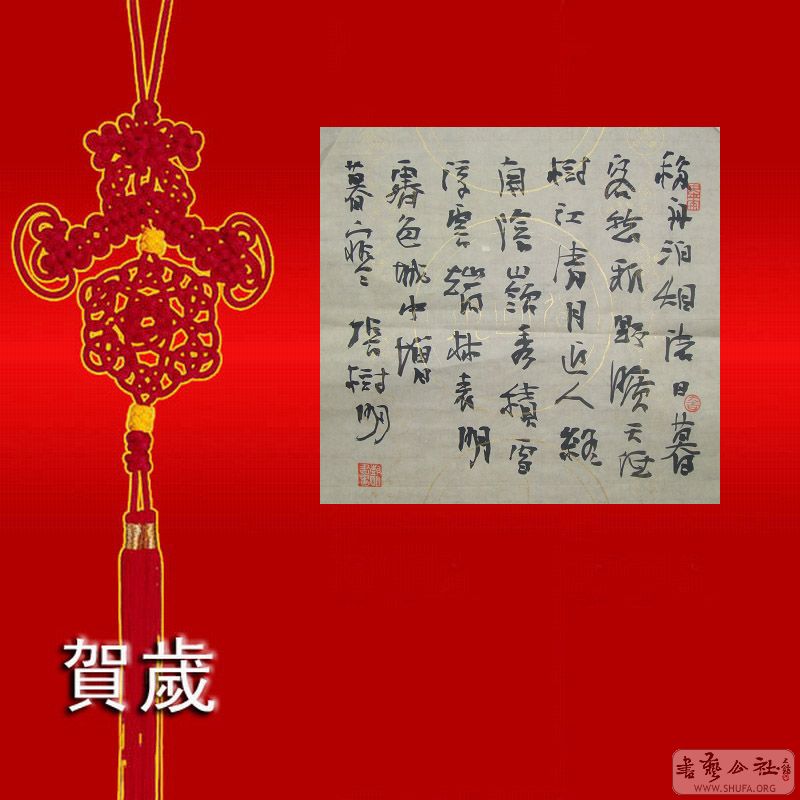 移舟泊烟渚日暮
客愁新野曠天低
樹江清月近人終
南陰嶺秀積雪
浮雲端林表明
霽色城中增
暮寒 張樹明
賀歲
書藝公社
WWW.SHUFA.ORG